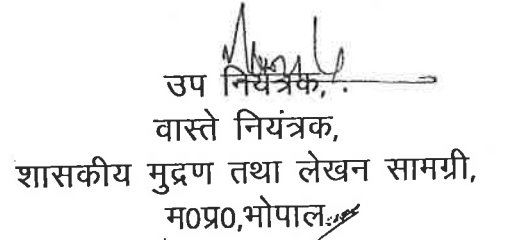 उप नियंत्रक,
वास्ते नियंत्रक,
शासकीय मुद्रण तथा लेखन सामग्री,
म0प्र0,भोपाल